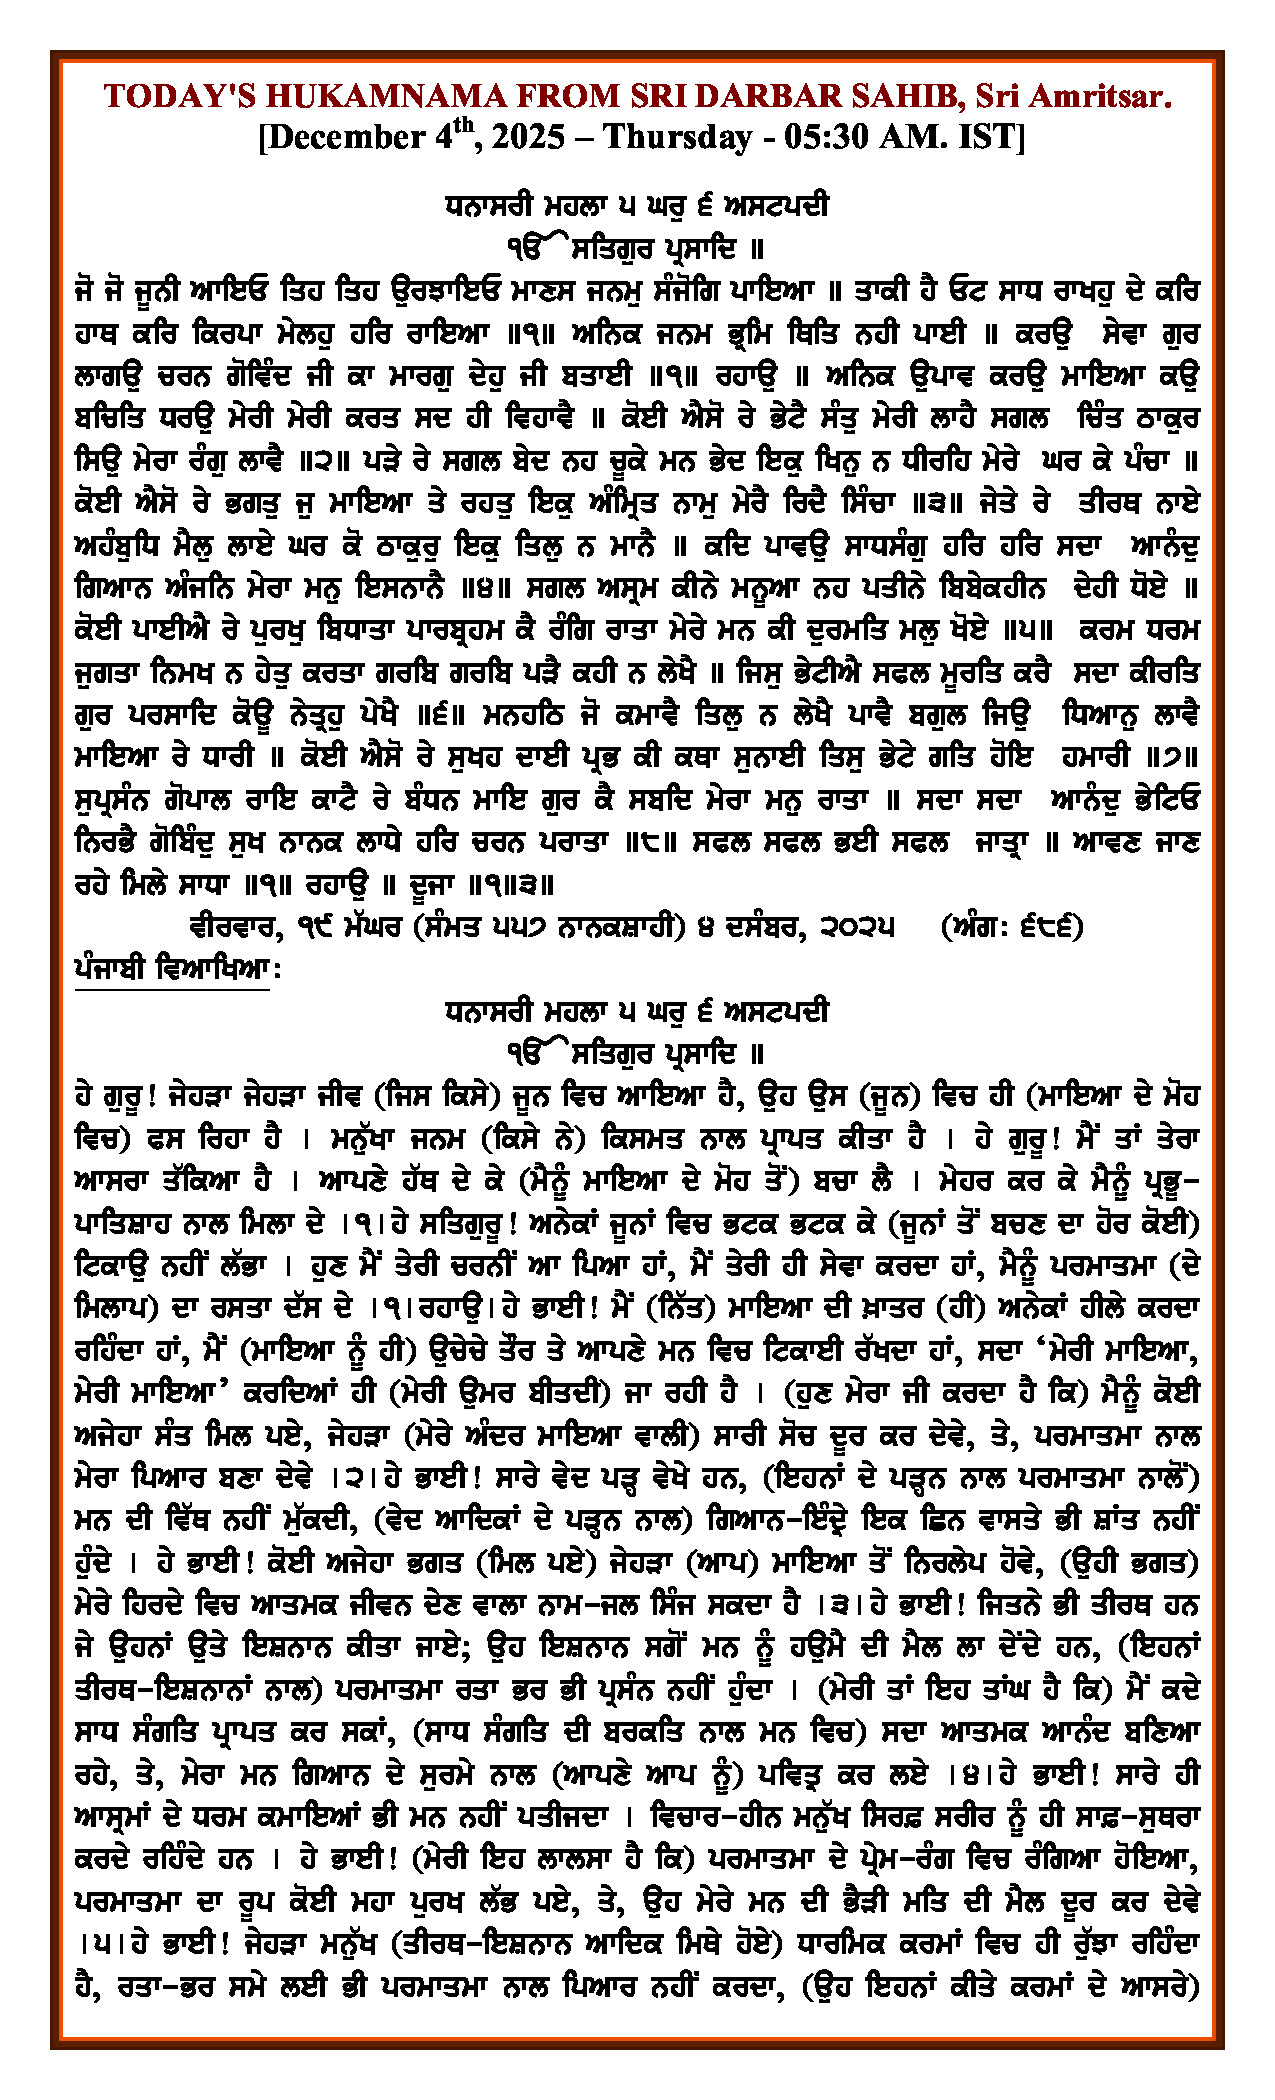 TODAY'S HUKAMNAMA FROM SRI DARBAR SAHIB, Sri Amritsar.
[December 4th, 2025 – Thursday - 05:30 AM. IST]
ਧਨਾਸਰੀ ਮਹਲਾ ੫ ਘਰੁ ੬ ਅਸਟਪਦੀ
ੴ ਸਤਿਗੁਰ ਪ੍ਰਸਾਦਿ ॥
ਜੋ ਜੋ ਜੂਨੀ ਆਇਓ ਤਿਹ ਤਿਹ ਉਰਝਾਇਓ ਮਾਣਸ ਜਨਮੁ ਸੰਜੋਗਿ ਪਾਇਆ ॥ ਤਾਕੀ ਹੈ ਓਟ ਸਾਧ ਰਾਖਹੁ ਦੇ ਕਰਿ
ਹਾਥ ਕਰਿ ਕਿਰਪਾ ਮੇਲਹੁ ਹਰਿ ਰਾਇਆ ॥੧॥ ਅਨਿਕ ਜਨਮ ਭ੍ਰਮਿ ਥਿਤਿ ਨਹੀ ਪਾਈ ॥ ਕਰਉ ਸੇਵਾ ਗੁਰ
ਲਾਗਉ ਚਰਨ ਗੋਵਿੰਦ ਜੀ ਕਾ ਮਾਰਗੁ ਦੇਹੁ ਜੀ ਬਤਾਈ ॥੧॥ ਰਹਾਉ ॥ ਅਨਿਕ ਉਪਾਵ ਕਰਉ ਮਾਇਆ ਕਉ
ਬਚਿਤਿ ਧਰਉ ਮੇਰੀ ਮੇਰੀ ਕਰਤ ਸਦ ਹੀ ਵਿਹਾਵੈ ॥ ਕੋਈ ਐਸੋ ਰੇ ਭੇਟੈ ਸੰਤੁ ਮੇਰੀ ਲਾਹੈ ਸਗਲ ਚਿੰਤ ਠਾਕੁਰ
ਸਿਉ ਮੇਰਾ ਰੰਗੁ ਲਾਵੈ ॥੨॥ ਪੜੇ ਰੇ ਸਗਲ ਬੇਦ ਨਹ ਚੂਕੇ ਮਨ ਭੇਦ ਇਕੁ ਖਿਨੁ ਨ ਧੀਰਹਿ ਮੇਰੇ ਘਰ ਕੇ ਪੰਚਾ ॥
ਕੋਈ ਐਸੋ ਰੇ ਭਗਤੁ ਜੁ ਮਾਇਆ ਤੇ ਰਹਤੁ ਇਕੁ ਅੰਮ੍ਰਿਤ ਨਾਮੁ ਮੇਰੈ ਰਿਦੈ ਸਿੰਚਾ ॥੩॥ ਜੇਤੇ ਰੇ ਤੀਰਥ ਨਾਏ
ਅਹੰਬੁਧਿ ਮੈਲੁ ਲਾਏ ਘਰ ਕੋ ਠਾਕੁਰੁ ਇਕੁ ਤਿਲੁ ਨ ਮਾਨੈ ॥ ਕਦਿ ਪਾਵਉ ਸਾਧਸੰਗੁ ਹਰਿ ਹਰਿ ਸਦਾ ਆਨੰਦੁ
ਗਿਆਨ ਅੰਜਨਿ ਮੇਰਾ ਮਨੁ ਇਸਨਾਨੈ ॥੪॥ ਸਗਲ ਅਸ੍ਰਮ ਕੀਨੇ ਮਨੂਆ ਨਹ ਪਤੀਨੇ ਬਿਬੇਕਹੀਨ ਦੇਹੀ ਧੋਏ ॥
ਕੋਈ ਪਾਈਐ ਰੇ ਪੁਰਖੁ ਬਿਧਾਤਾ ਪਾਰਬ੍ਰਹਮ ਕੈ ਰੰਗਿ ਰਾਤਾ ਮੇਰੇ ਮਨ ਕੀ ਦੁਰਮਤਿ ਮਲੁ ਖੋਏ ॥੫॥ ਕਰਮ ਧਰਮ
ਜੁਗਤਾ ਨਿਮਖ ਨ ਹੇਤੁ ਕਰਤਾ ਗਰਬਿ ਗਰਬਿ ਪੜੈ ਕਹੀ ਨ ਲੇਖੈ ॥ ਜਿਸੁ ਭੇਟੀਐ ਸਫਲ ਮੂਰਤਿ ਕਰੈ ਸਦਾ ਕੀਰਤਿ
ਗੁਰ ਪਰਸਾਦਿ ਕੋਊ ਨੇਤ੍ਰਹੁ ਪੇਖੈ ॥੬॥ ਮਨਹਠਿ ਜੋ ਕਮਾਵੈ ਤਿਲੁ ਨ ਲੇਖੈ ਪਾਵੈ ਬਗੁਲ ਜਿਉ ਧਿਆਨੁ ਲਾਵੈ
ਮਾਇਆ ਰੇ ਧਾਰੀ ॥ ਕੋਈ ਐਸੋ ਰੇ ਸੁਖਹ ਦਾਈ ਪ੍ਰਭ ਕੀ ਕਥਾ ਸੁਨਾਈ ਤਿਸੁ ਭੇਟੇ ਗਤਿ ਹੋਇ ਹਮਾਰੀ ॥੭॥
ਸੁਪ੍ਰਸੰਨ ਗੋਪਾਲ ਰਾਇ ਕਾਟੈ ਰੇ ਬੰਧਨ ਮਾਇ ਗੁਰ ਕੈ ਸਬਦਿ ਮੇਰਾ ਮਨੁ ਰਾਤਾ ॥ ਸਦਾ ਸਦਾ ਆਨੰਦੁ ਭੇਟਿਓ
ਨਿਰਭੈ ਗੋਬਿੰਦੁ ਸੁਖ ਨਾਨਕ ਲਾਧੇ ਹਰਿ ਚਰਨ ਪਰਾਤਾ ॥੮॥ ਸਫਲ ਸਫਲ ਭਈ ਸਫਲ ਜਾਤ੍ਰਾ ॥ ਆਵਣ ਜਾਣ
ਰਹੇ ਮਿਲੇ ਸਾਧਾ ॥੧॥ ਰਹਾਉ ॥ ਦੂਜਾ ॥੧॥੩॥
ਵੀਰਵਾਰ, ੧੯ ਮੱਘਰ (ਸੰਮਤ ੫੫੭ ਨਾਨਕਸ਼ਾਹੀ) ੪ ਦਸੰਬਰ, ੨੦੨੫ (ਅੰਗ: ੬੮੬)
ਪੰਜਾਬੀ ਵਿਆਖਿਆ:
ਧਨਾਸਰੀ ਮਹਲਾ ੫ ਘਰੁ ੬ ਅਸਟਪਦੀ
ੴ ਸਤਿਗੁਰ ਪ੍ਰਸਾਦਿ ॥
ਹੇ ਗੁਰੂ! ਜੇਹੜਾ ਜੇਹੜਾ ਜੀਵ (ਜਿਸ ਕਿਸੇ) ਜੂਨ ਵਿਚ ਆਇਆ ਹੈ, ਉਹ ਉਸ (ਜੂਨ) ਵਿਚ ਹੀ (ਮਾਇਆ ਦੇ ਮੋਹ
ਵਿਚ) ਫਸ ਰਿਹਾ ਹੈ । ਮਨੁੱਖਾ ਜਨਮ (ਕਿਸੇ ਨੇ) ਕਿਸਮਤ ਨਾਲ ਪ੍ਰਾਪਤ ਕੀਤਾ ਹੈ । ਹੇ ਗੁਰੂ! ਮੈਂ ਤਾਂ ਤੇਰਾ
ਆਸਰਾ ਤੱਕਿਆ ਹੈ । ਆਪਣੇ ਹੱਥ ਦੇ ਕੇ (ਮੈਨੂੰ ਮਾਇਆ ਦੇ ਮੋਹ ਤੋਂ) ਬਚਾ ਲੈ । ਮੇਹਰ ਕਰ ਕੇ ਮੈਨੂੰ ਪ੍ਰਭੂ-
ਪਾਤਿਸ਼ਾਹ ਨਾਲ ਮਿਲਾ ਦੇ ।੧।ਹੇ ਸਤਿਗੁਰੂ! ਅਨੇਕਾਂ ਜੂਨਾਂ ਵਿਚ ਭਟਕ ਭਟਕ ਕੇ (ਜੂਨਾਂ ਤੋਂ ਬਚਣ ਦਾ ਹੋਰ ਕੋਈ)
ਟਿਕਾਉ ਨਹੀਂ ਲੱਭਾ । ਹੁਣ ਮੈਂ ਤੇਰੀ ਚਰਨੀਂ ਆ ਪਿਆ ਹਾਂ, ਮੈਂ ਤੇਰੀ ਹੀ ਸੇਵਾ ਕਰਦਾ ਹਾਂ, ਮੈਨੂੰ ਪਰਮਾਤਮਾ (ਦੇ
ਮਿਲਾਪ) ਦਾ ਰਸਤਾ ਦੱਸ ਦੇ ।੧।ਰਹਾਉ।ਹੇ ਭਾਈ! ਮੈਂ (ਨਿੱਤ) ਮਾਇਆ ਦੀ ਖ਼ਾਤਰ (ਹੀ) ਅਨੇਕਾਂ ਹੀਲੇ ਕਰਦਾ
ਰਹਿੰਦਾ ਹਾਂ, ਮੈਂ (ਮਾਇਆ ਨੂੰ ਹੀ) ਉਚੇਚੇ ਤੌਰ ਤੇ ਆਪਣੇ ਮਨ ਵਿਚ ਟਿਕਾਈ ਰੱਖਦਾ ਹਾਂ, ਸਦਾ ‘ਮੇਰੀ ਮਾਇਆ,
ਮੇਰੀ ਮਾਇਆ’ ਕਰਦਿਆਂ ਹੀ (ਮੇਰੀ ਉਮਰ ਬੀਤਦੀ) ਜਾ ਰਹੀ ਹੈ । (ਹੁਣ ਮੇਰਾ ਜੀ ਕਰਦਾ ਹੈ ਕਿ) ਮੈਨੂੰ ਕੋਈ
ਅਜੇਹਾ ਸੰਤ ਮਿਲ ਪਏ, ਜੇਹੜਾ (ਮੇਰੇ ਅੰਦਰ ਮਾਇਆ ਵਾਲੀ) ਸਾਰੀ ਸੋਚ ਦੂਰ ਕਰ ਦੇਵੇ, ਤੇ, ਪਰਮਾਤਮਾ ਨਾਲ
ਮੇਰਾ ਪਿਆਰ ਬਣਾ ਦੇਵੇ ।੨।ਹੇ ਭਾਈ! ਸਾਰੇ ਵੇਦ ਪੜ੍ਹ ਵੇਖੇ ਹਨ, (ਇਹਨਾਂ ਦੇ ਪੜ੍ਹਨ ਨਾਲ ਪਰਮਾਤਮਾ ਨਾਲੋਂ)
ਮਨ ਦੀ ਵਿੱਥ ਨਹੀਂ ਮੁੱਕਦੀ, (ਵੇਦ ਆਦਿਕਾਂ ਦੇ ਪੜ੍ਹਨ ਨਾਲ) ਗਿਆਨ-ਇੰਦ੍ਰੇ ਇਕ ਛਿਨ ਵਾਸਤੇ ਭੀ ਸ਼ਾਂਤ ਨਹੀਂ
ਹੁੰਦੇ । ਹੇ ਭਾਈ! ਕੋਈ ਅਜੇਹਾ ਭਗਤ (ਮਿਲ ਪਏ) ਜੇਹੜਾ (ਆਪ) ਮਾਇਆ ਤੋਂ ਨਿਰਲੇਪ ਹੋਵੇ, (ਉਹੀ ਭਗਤ)
ਮੇਰੇ ਹਿਰਦੇ ਵਿਚ ਆਤਮਕ ਜੀਵਨ ਦੇਣ ਵਾਲਾ ਨਾਮ-ਜਲ ਸਿੰਜ ਸਕਦਾ ਹੈ ।੩।ਹੇ ਭਾਈ! ਜਿਤਨੇ ਭੀ ਤੀਰਥ ਹਨ
ਜੇ ਉਹਨਾਂ ਉਤੇ ਇਸ਼ਨਾਨ ਕੀਤਾ ਜਾਏ; ਉਹ ਇਸ਼ਨਾਨ ਸਗੋਂ ਮਨ ਨੂੰ ਹਉਮੈ ਦੀ ਮੈਲ ਲਾ ਦੇਂਦੇ ਹਨ, (ਇਹਨਾਂ
ਤੀਰਥ-ਇਸ਼ਨਾਨਾਂ ਨਾਲ) ਪਰਮਾਤਮਾ ਰਤਾ ਭਰ ਭੀ ਪ੍ਰਸੰਨ ਨਹੀਂ ਹੁੰਦਾ । (ਮੇਰੀ ਤਾਂ ਇਹ ਤਾਂਘ ਹੈ ਕਿ) ਮੈਂ ਕਦੇ
ਸਾਧ ਸੰਗਤਿ ਪ੍ਰਾਪਤ ਕਰ ਸਕਾਂ, (ਸਾਧ ਸੰਗਤਿ ਦੀ ਬਰਕਤਿ ਨਾਲ ਮਨ ਵਿਚ) ਸਦਾ ਆਤਮਕ ਆਨੰਦ ਬਣਿਆ
ਰਹੇ, ਤੇ, ਮੇਰਾ ਮਨ ਗਿਆਨ ਦੇ ਸੁਰਮੇ ਨਾਲ (ਆਪਣੇ ਆਪ ਨੂੰ) ਪਵਿਤ੍ਰ ਕਰ ਲਏ ।੪।ਹੇ ਭਾਈ! ਸਾਰੇ ਹੀ
ਆਸ੍ਰਮਾਂ ਦੇ ਧਰਮ ਕਮਾਇਆਂ ਭੀ ਮਨ ਨਹੀਂ ਪਤੀਜਦਾ । ਵਿਚਾਰ-ਹੀਨ ਮਨੁੱਖ ਸਿਰਫ਼ ਸਰੀਰ ਨੂੰ ਹੀ ਸਾਫ਼-ਸੁਥਰਾ
ਕਰਦੇ ਰਹਿੰਦੇ ਹਨ । ਹੇ ਭਾਈ! (ਮੇਰੀ ਇਹ ਲਾਲਸਾ ਹੈ ਕਿ) ਪਰਮਾਤਮਾ ਦੇ ਪ੍ਰੇਮ-ਰੰਗ ਵਿਚ ਰੰਗਿਆ ਹੋਇਆ,
ਪਰਮਾਤਮਾ ਦਾ ਰੂਪ ਕੋਈ ਮਹਾ ਪੁਰਖ ਲੱਭ ਪਏ, ਤੇ, ਉਹ ਮੇਰੇ ਮਨ ਦੀ ਭੈੜੀ ਮਤਿ ਦੀ ਮੈਲ ਦੂਰ ਕਰ ਦੇਵੇ
।੫।ਹੇ ਭਾਈ! ਜੇਹੜਾ ਮਨੁੱਖ (ਤੀਰਥ-ਇਸ਼ਨਾਨ ਆਦਿਕ ਮਿਥੇ ਹੋਏ) ਧਾਰਮਿਕ ਕਰਮਾਂ ਵਿਚ ਹੀ ਰੁੱਝਾ ਰਹਿੰਦਾ
ਹੈ, ਰਤਾ-ਭਰ ਸਮੇ ਲਈ ਭੀ ਪਰਮਾਤਮਾ ਨਾਲ ਪਿਆਰ ਨਹੀਂ ਕਰਦਾ, (ਉਹ ਇਹਨਾਂ ਕੀਤੇ ਕਰਮਾਂ ਦੇ ਆਸਰੇ)